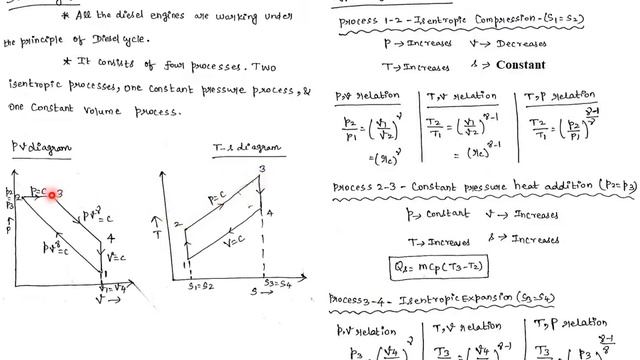 * All the diesel engines are working under
the principle of Diesel cycle.
* It consists of four processes. Two
isentropic processes, one constant pressure process, &
one constant volume process.
PV diagram
T-s diagram
p2
= p3
↑
P
2
P=C
3
PVᵞ=C
PVᵞ=C
4
V=C
1
V1=V4
V →
↑
T
2
P=C
3
4
V=C
1
S1=S2
S →
S3=S4
Process 1-2 - Isentropic Compression - (S1=S2)
P → Increases V → Decreases
T → Increases s → Constant
P,V relation T,V relation T,P relation
P2/P1 = (V1/V2)^γ T2/T1 = (V1/V2)^γ-1 T2/T1 = (P2/P1)^γ-1/γ
= (rc)^γ = (rc)^γ-1
Process 2-3 - Constant pressure heat addition (P2=P3)
P → Constant V → Increases
T → Increases s → Increases
Qs = mCp (T3-T2)
Process 3-4 - Isentropic Expansion (S3=S4)
P,V relation T,V relation T,P relation